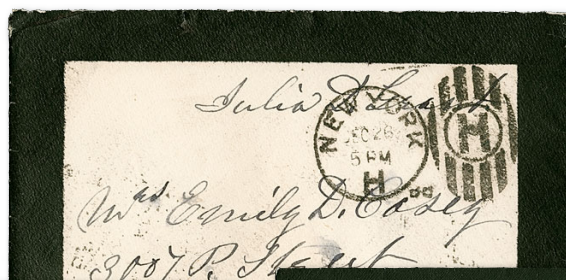 Julia D. Grant
NEW YORK
DEC 26
5 PM
H
H
Mrs Emily D. Casey
3007 P. Street